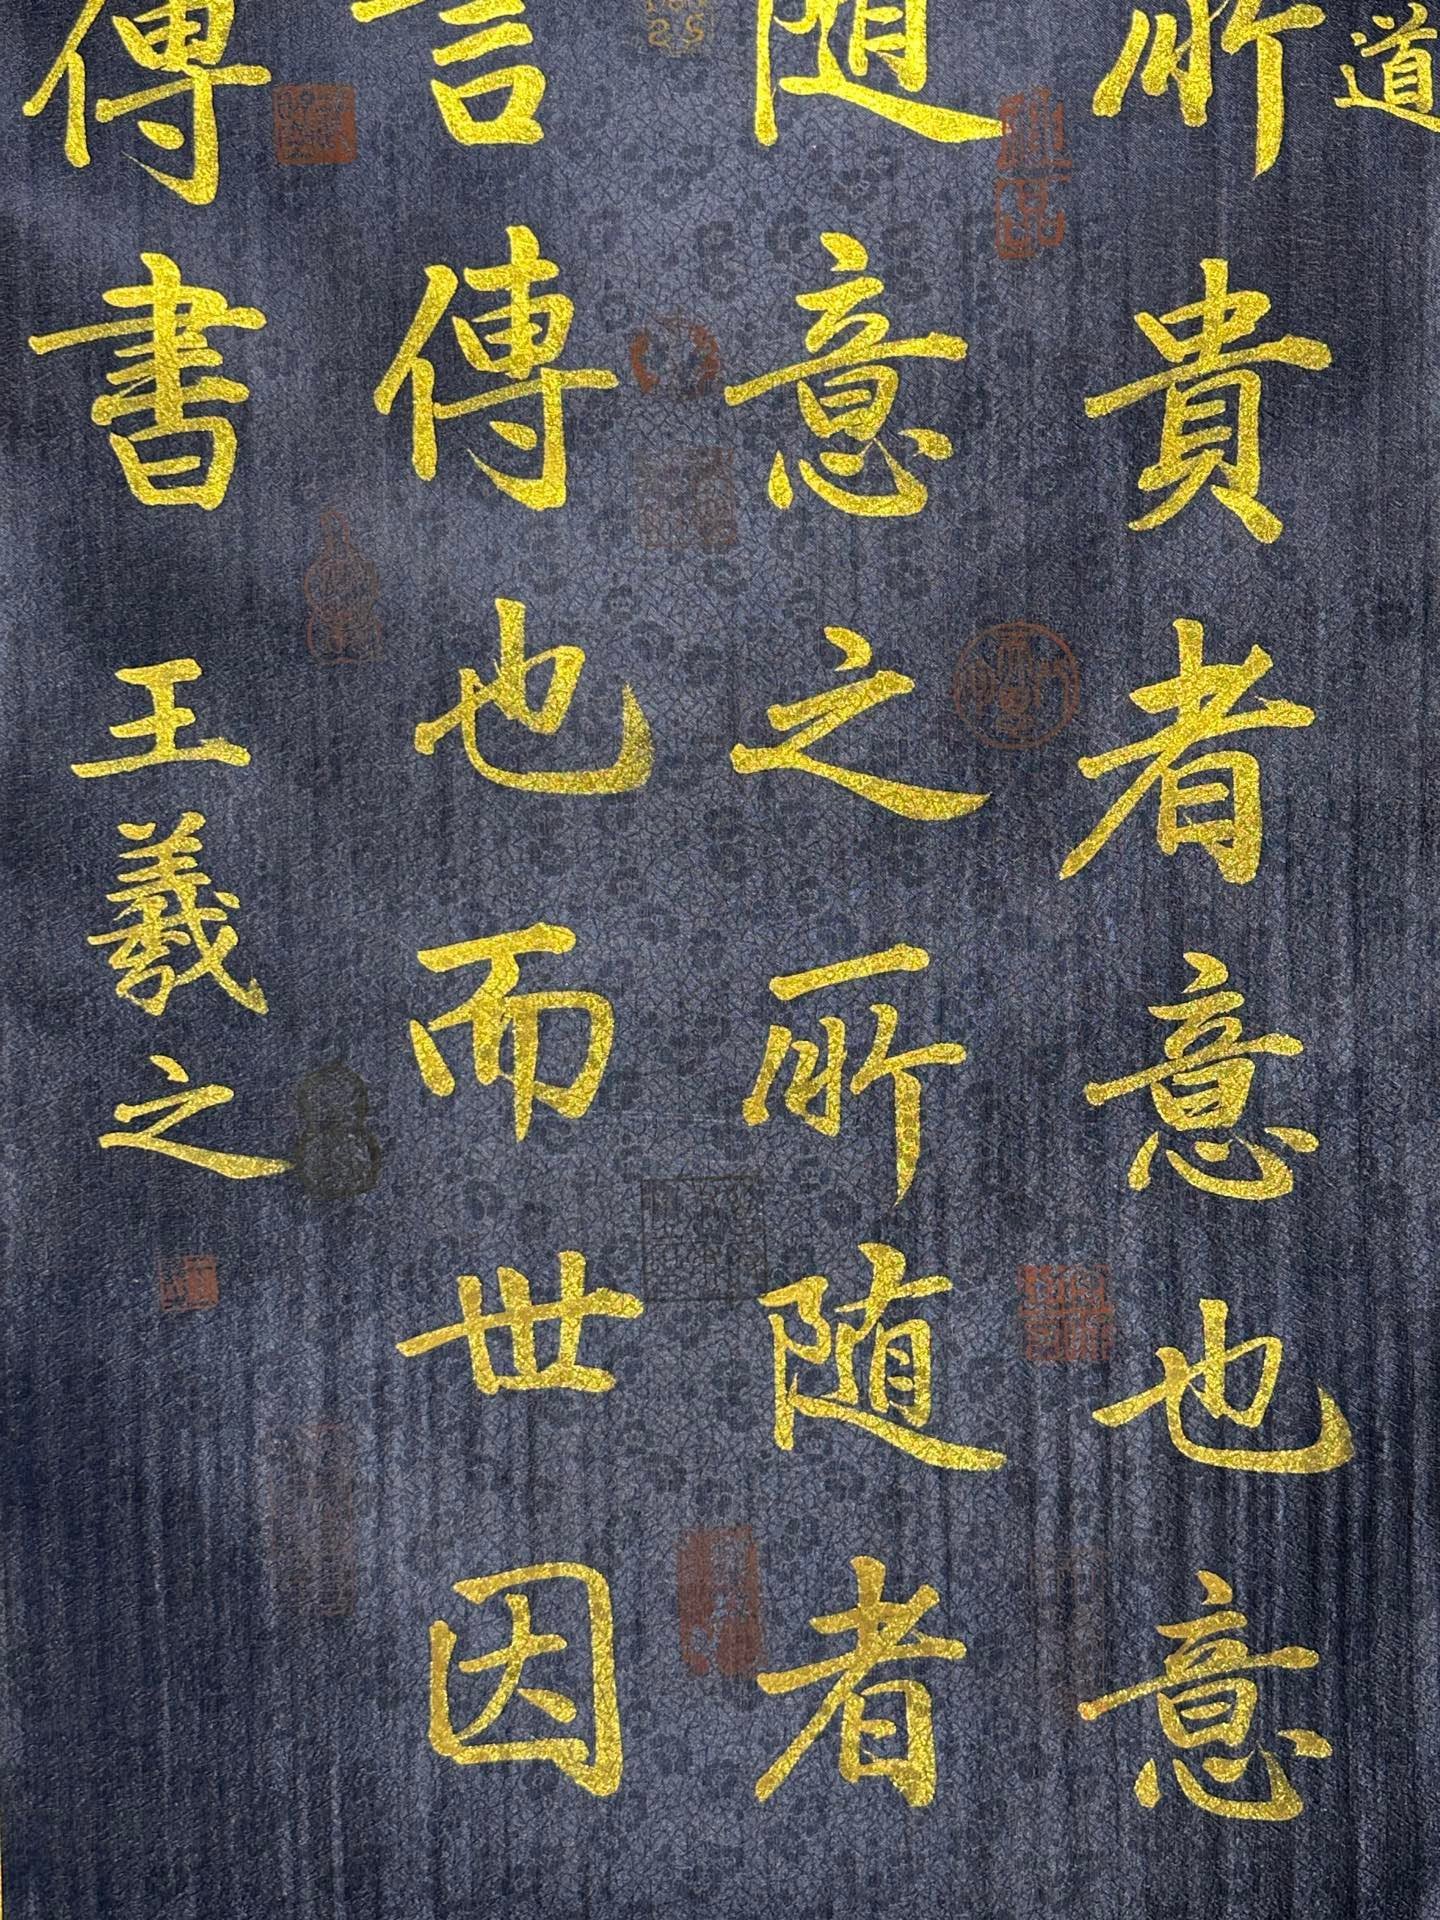 道
所貴者意也意
随意之所随者
言傳也而世因
傳書
王羲之